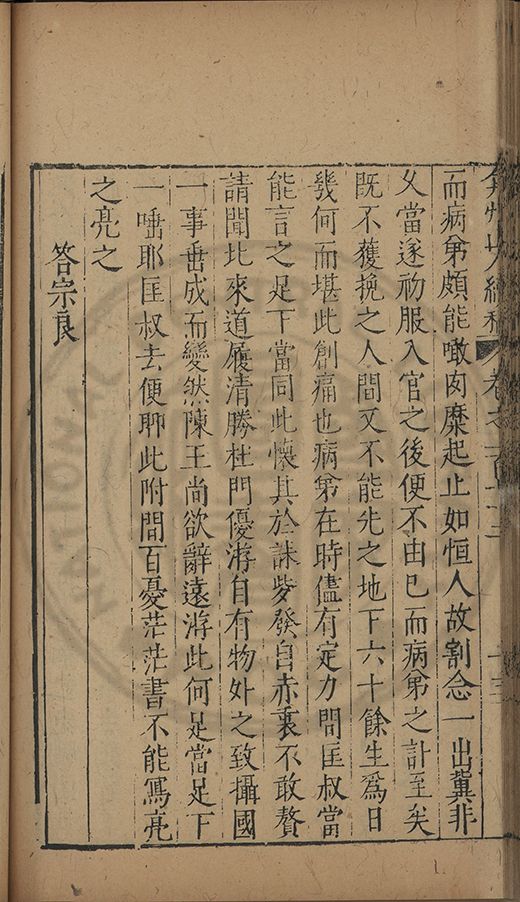 而病弟頗能噉肉糜起止如恒人故割念一出冀非
久當遂初服入官之後便不由已而病弟之計至矣
既不獲挽之人間又不能先之地下六十餘生爲日
幾何而堪此創痛也病弟在時儘有定力問匡叔當
能言之足下當同此懷其於誄發自赤裏不敢贅
請聞比來道履清勝杜門優游自有物外之致攝國
一事垂成而變然陳王尚欲辭遠游此何足當足下
一唾耶匡叔去便聊此附問百憂茫茫書不能寫亮
之亮之
答宗良